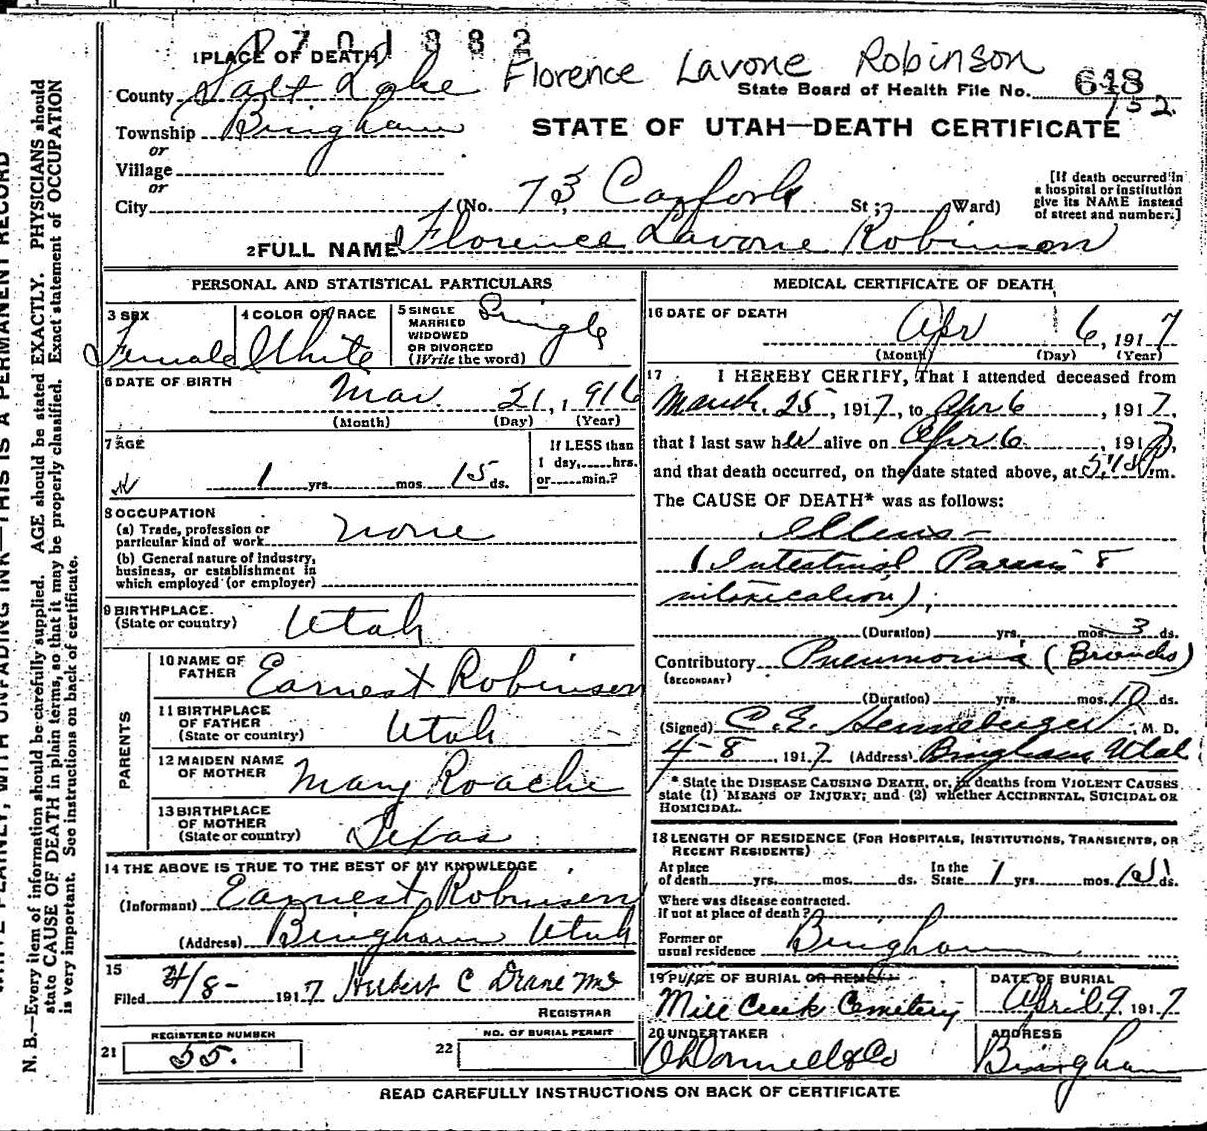 1701882
1 PLACE OF DEATH
Florence Lavone Robinson
County Salt Lake
State Board of Health File No. 648
752
Township Bingham
STATE OF UTAH—DEATH CERTIFICATE
or
Village
or
City (No. 73 Carfork St.; Ward)
[If death occurred in
a hospital or institution
give its NAME instead
of street and number.]
2 FULL NAME Florence Lavone Robinson
PERSONAL AND STATISTICAL PARTICULARS
3 SEX Female
4 COLOR OR RACE White
5 SINGLE
MARRIED
WIDOWED
OR DIVORCED
(Write the word) Single
6 DATE OF BIRTH
Mar. 21, 1916
(Month) (Day) (Year)
7 AGE
1 yrs. mos. 15 ds.
If LESS than
1 day, hrs.
or min.?
8 OCCUPATION
(a) Trade, profession or
particular kind of work none
(b) General nature of industry,
business, or establishment in
which employed (or employer)
9 BIRTHPLACE.
(State or country) Utah
PARENTS
10 NAME OF
FATHER Earnest Robinson
11 BIRTHPLACE
OF FATHER
(State or country) Utah
12 MAIDEN NAME
OF MOTHER Mary Roache
13 BIRTHPLACE
OF MOTHER
(State or country) Texas
14 THE ABOVE IS TRUE TO THE BEST OF MY KNOWLEDGE
(Informant) Earnest Robinson
(Address) Bingham Utah
15
Filed 4/8- 1917 Hubert C
REGISTRAR
REGISTERED NUMBER
21 55.
NO. OF BURIAL PERMIT
22
MEDICAL CERTIFICATE OF DEATH
16 DATE OF DEATH
Apr 6, 1917
(Month) (Day) (Year)
17 I HEREBY CERTIFY, That I attended deceased from
March. 25, 1917, to Apr 6, 1917,
that I last saw her alive on Apr 6, 1917,
and that death occurred, on the date stated above, at m.
The CAUSE OF DEATH* was as follows:
Illeus-
(Intestinal &
intoxication);
(Duration) yrs. mos. 3 ds.
Contributory Pneumonia
(SECONDARY)
(Duration) yrs. mos. 10 ds.
(Signed) C.E. M. D.
4-8, 1917 (Address) Bingham Utah
* State the DISEASE CAUSING DEATH, or, in deaths from VIOLENT CAUSES
state (1) MEANS OF INJURY; and (2) whether ACCIDENTAL, SUICIDAL OR
HOMICIDAL.
18 LENGTH OF RESIDENCE (FOR HOSPITALS, INSTITUTIONS, TRANSIENTS, OR
RECENT RESIDENTS)
At place
of death yrs. mos. ds. In the
State 1 yrs. mos. ds.
Where was disease contracted.
if not at place of death?
Former or
usual residence Bingham
19 PLACE OF BURIAL OR REMOVAL
Mill Creek Cemetery
DATE OF BURIAL
April 9, 1917
20 UNDERTAKER
O'Donnell & Co
ADDRESS
Bingham
READ CAREFULLY INSTRUCTIONS ON BACK OF CERTIFICATE
WRITE PLAINLY, WITH UNFADING INK—THIS IS A PERMANENT RECORD
N. B.—Every item of information should be carefully supplied. AGE should be stated EXACTLY. PHYSICIANS should
state CAUSE OF DEATH in plain terms, so that it may be properly classified. Exact statement of OCCUPATION
is very important. See instructions on back of certificate.